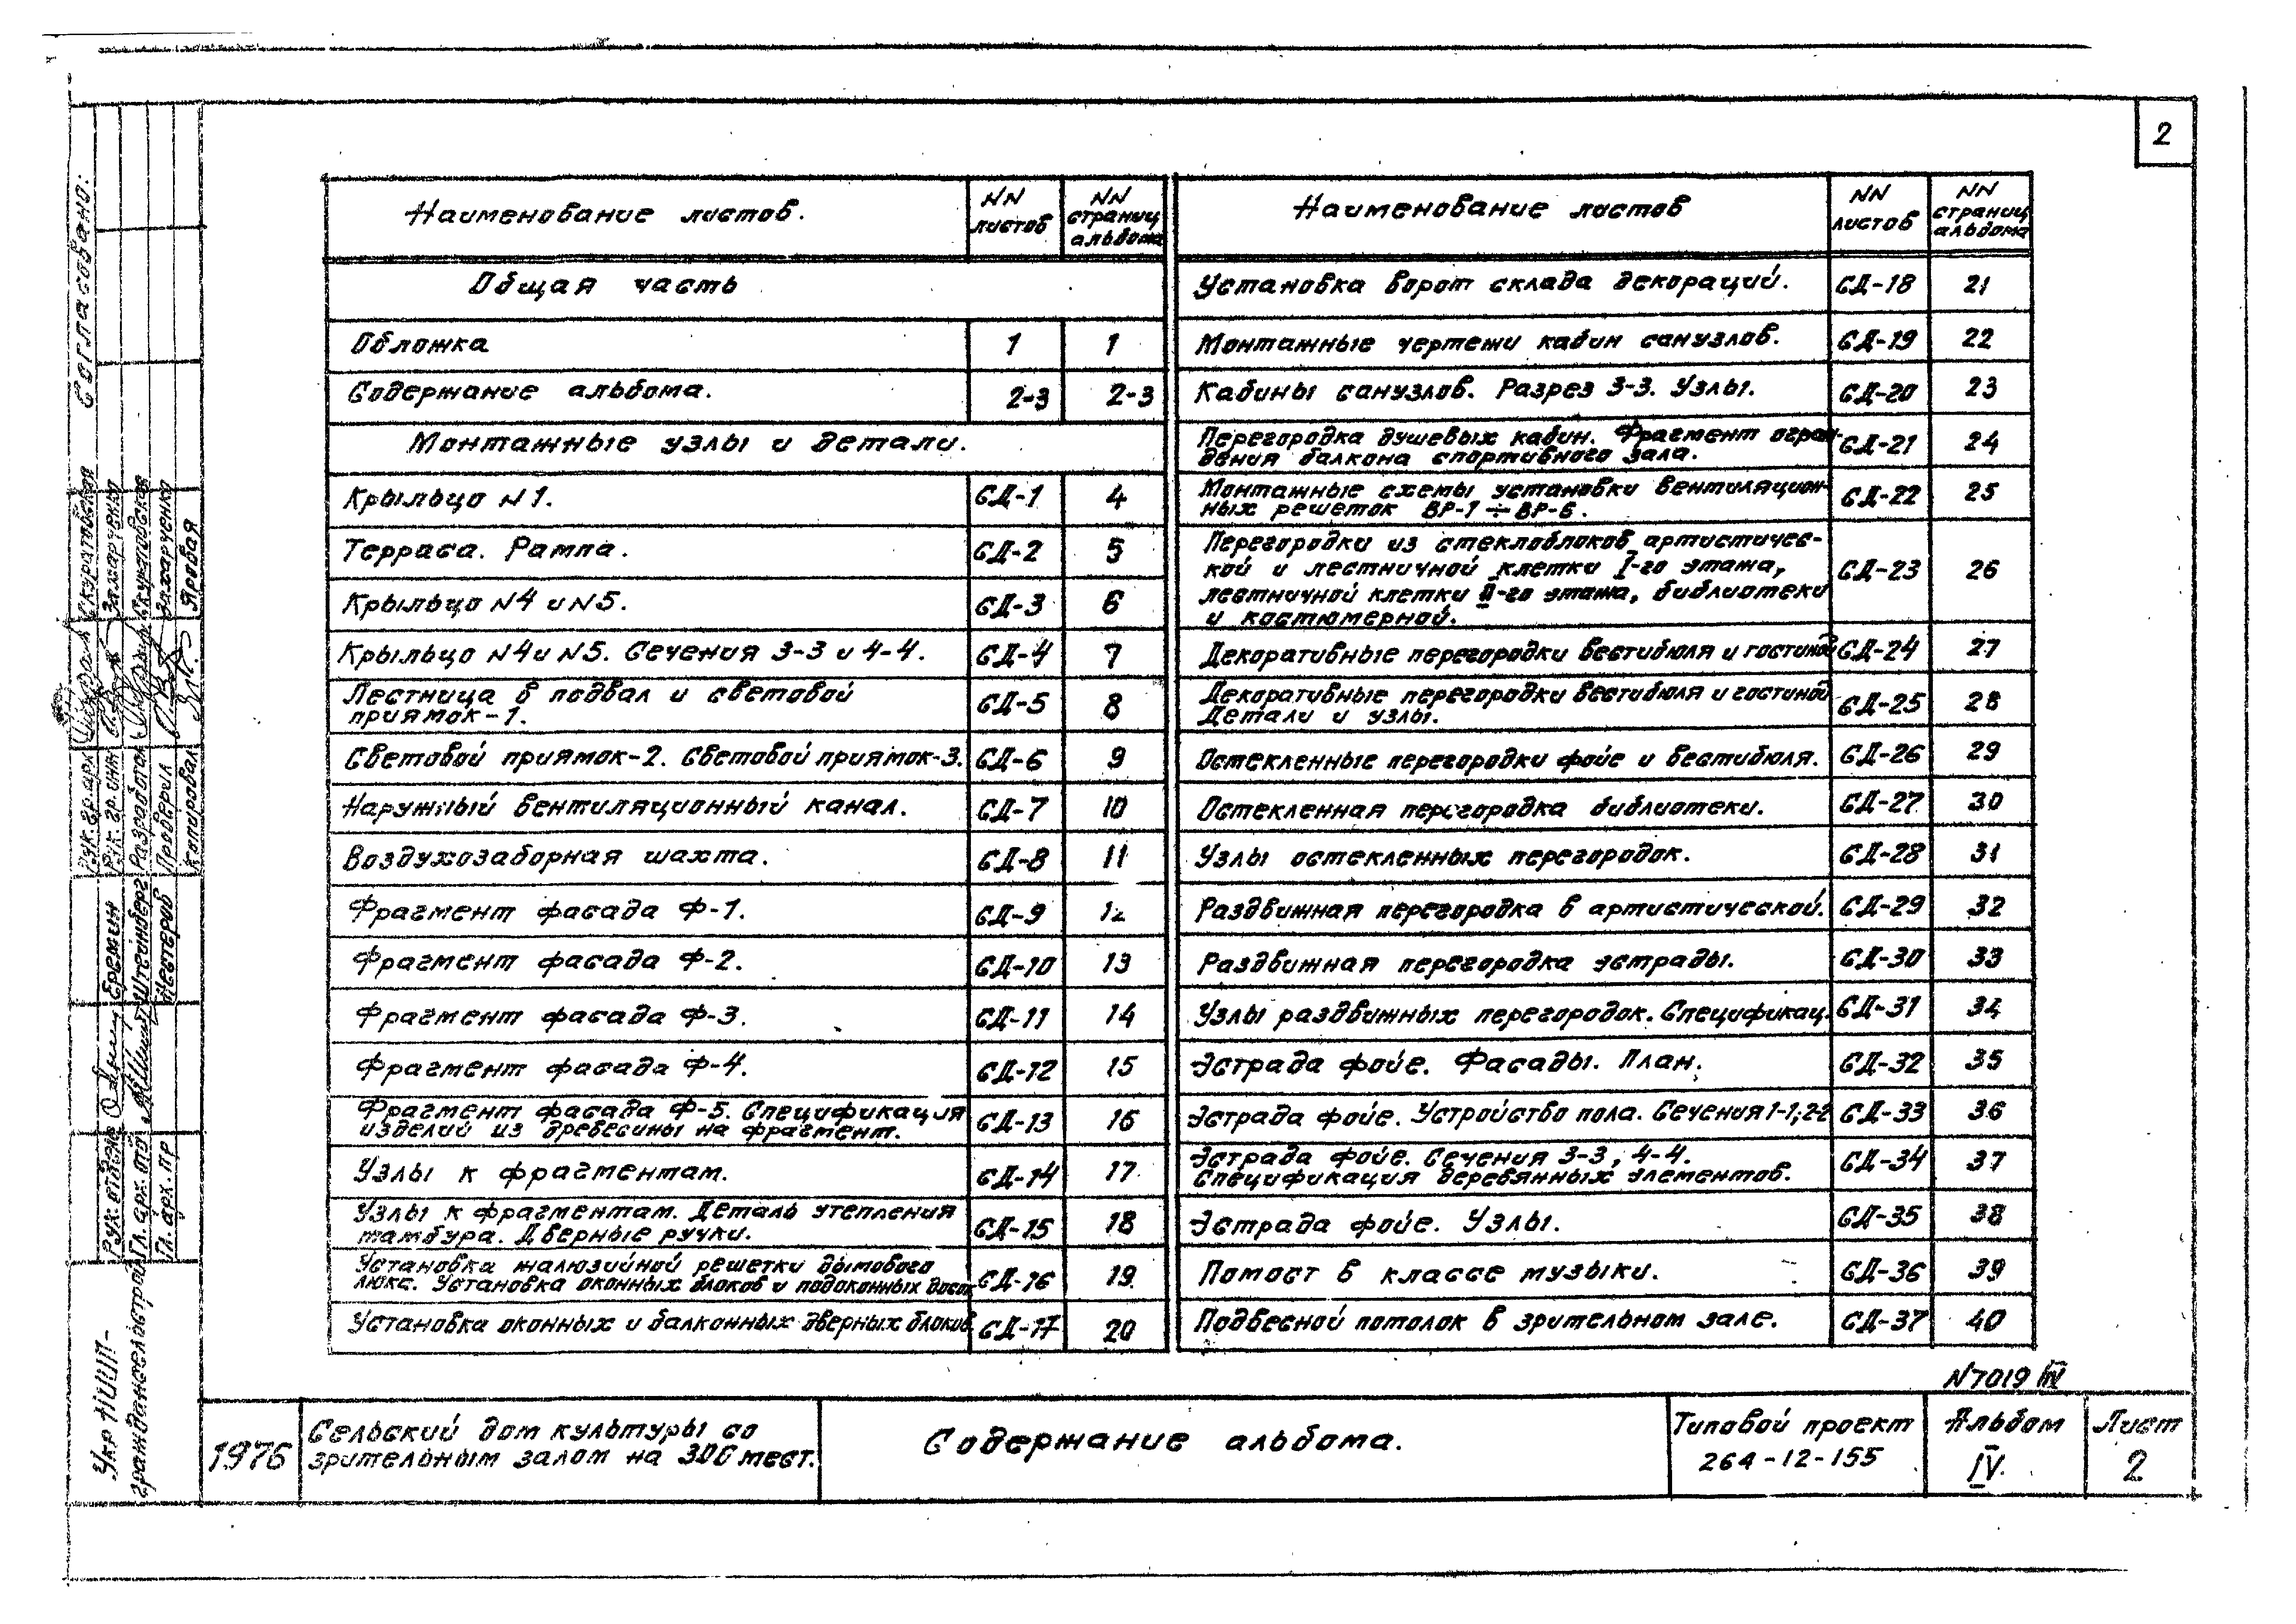 2
Наименование листов.
NN листов
NN страниц альбома
Общая часть
Обложка 1 1
Содержание альбома. 2-3 2-3
Монтажные узлы и детали.
Крыльцо N1. СД-1 4
Терраса. Рампа. СД-2 5
Крыльцо N4 и N5. СД-3 6
Крыльцо N4 и N5. Сечения 3-3 и 4-4. СД-4 7
Лестница в подвал и световой
приямок-1. СД-5 8
Световой приямок-2. Световой приямок-3. СД-6 9
Наружный вентиляционный канал. СД-7 10
Воздухозаборная шахта. СД-8 11
Фрагмент фасада Ф-1. СД-9 12
Фрагмент фасада Ф-2. СД-10 13
Фрагмент фасада Ф-3. СД-11 14
Фрагмент фасада Ф-4. СД-12 15
Фрагмент фасада Ф-5. Спецификация
изделий из древесины на фрагмент. СД-13 16
Узлы к фрагментам. СД-14 17
Узлы к фрагментам. Деталь утепления
тамбура. Дверные ручки. СД-15 18
Установка жалюзийной решетки дымового
люка. Установка оконных блоков и подоконных досок СД-16 19
Установка оконных и балконных дверных блоков СД-17 20
Наименование листов
NN листов
NN страниц альбома
Установка ворот склада декораций. СД-18 21
Монтажные чертежи кабин санузлов. СД-19 22
Кабины санузлов. Разрез 3-3. Узлы. СД-20 23
Перегородка душевых кабин. Фрагмент ограж-
дения балкона спортивного зала. СД-21 24
Монтажные схемы установки вентиляцион-
ных решеток ВР-1 ÷ ВР-6. СД-22 25
Перегородки из стеклоблоков артистичес-
кой и лестничной клетки I-го этажа,
лестничной клетки II-го этажа, библиотеки
и костюмерной. СД-23 26
Декоративные перегородки вестибюля и гостиной СД-24 27
Декоративные перегородки вестибюля и гостиной
Детали и узлы. СД-25 28
Остекленные перегородки фойе и вестибюля. СД-26 29
Остекленная перегородка библиотеки. СД-27 30
Узлы остекленных перегородок. СД-28 31
Раздвижная перегородка в артистической. СД-29 32
Раздвижная перегородка эстрады. СД-30 33
Узлы раздвижных перегородок. Спецификац. СД-31 34
Эстрада фойе. Фасады. План. СД-32 35
Эстрада фойе. Устройство пола. Сечения 1-1; 2-2 СД-33 36
Эстрада фойе. Сечения 3-3, 4-4.
Спецификация деревянных элементов. СД-34 37
Эстрада фойе. Узлы. СД-35 38
Помост в классе музыки. СД-36 39
Подвесной потолок в зрительном зале. СД-37 40
N7019 IV
1976
Сельский дом культуры со
зрительным залом на 300 мест.
Содержание альбома.
Типовой проект
264-12-155
Альбом
IV.
Лист
2
Согласовано:
Рук. гр. арх. Скуратовская
Рук. гр. инж. Захарученко
Разработал Скуратовская
Проверил Захарученко
Копировал Яровая
Рук. отделен. Еремин
Гл. арх. отд Штейнберг
Гл. арх. пр Нестеров
Укр НИИП-
граждансельстрой